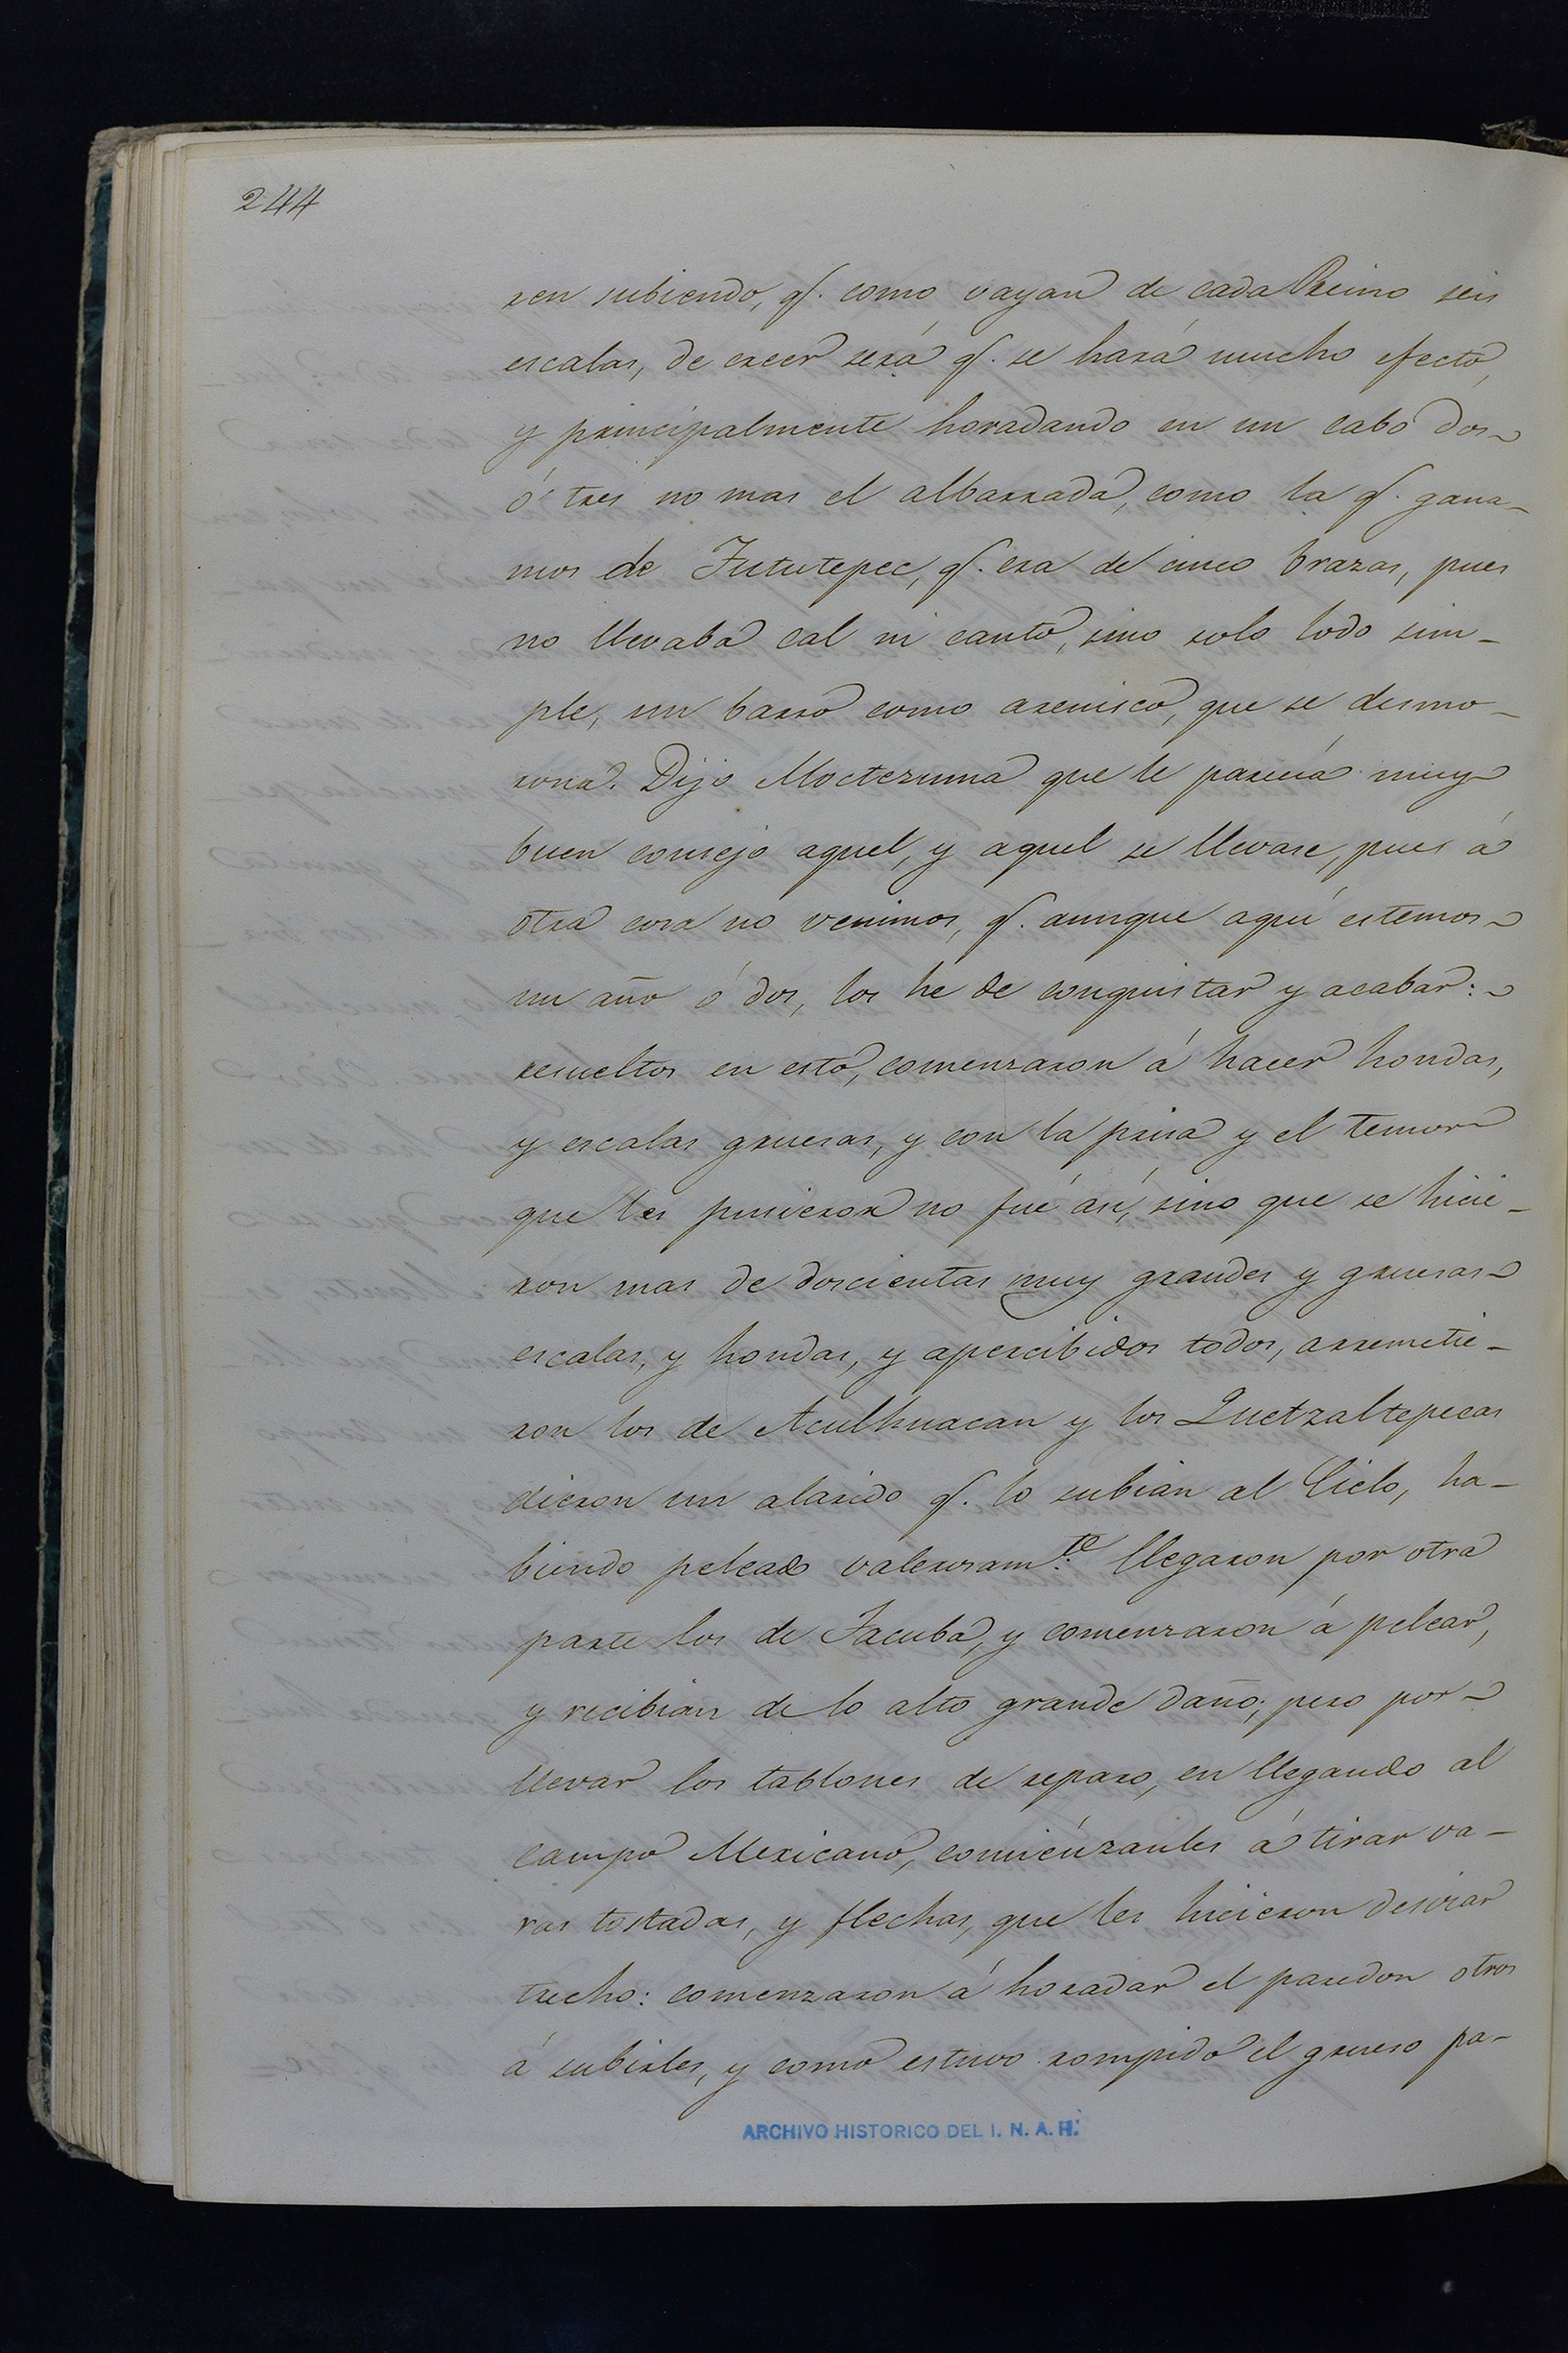 244
ren subiendo, q.ͤ como vayan de cada Reino seis
escalas, de creer será q. se hará mucho efecto,
y principalmente horadando en un cabo dos
ó tres no mas el albarrada, como la q. gana-
mos de Tututepec, q. era de cinco brazas, pues
no llevaba cal ni canto, sino solo lodo sim-
ple, un barro como arenisco, que se desmo-
rona. Dijo Moctezuma que le parecia muy
buen consejo aquel, y aquel se llevase, pues á
otra cosa no venimos, q. aunque aquí estemos
un año ó dos, los he de conquistar y acabar:
resueltos en esto, comenzaron á hacer hondas,
y escalas gruesas, y con la prisa y el temor
que les pusieron no fué así, sino que se hicie-
ron mas de doscientas muy grandes y gruesas
escalas, y hondas, y apercibidos todos, arremetie-
ron los de Aculhuacan y los Quetzaltepecas
dieron un alarido q. lo subian al Cielo, ha-
biendo peleado valerosam.te llegaron por otra
parte los de Tacuba, y comenzaron á pelear,
y recibian de lo alto grande daño; pero por
llevar los tablones de reparo, en llegando al
campo Mexicano, comiénzanles á tirar va-
ras tostadas, y flechas, que les hicieron desviar
trecho: comenzaron á horadar el paredon otros
á subirles, y como estuvo rompido el grueso pa-
ARCHIVO HISTORICO DEL I. N. A. H.